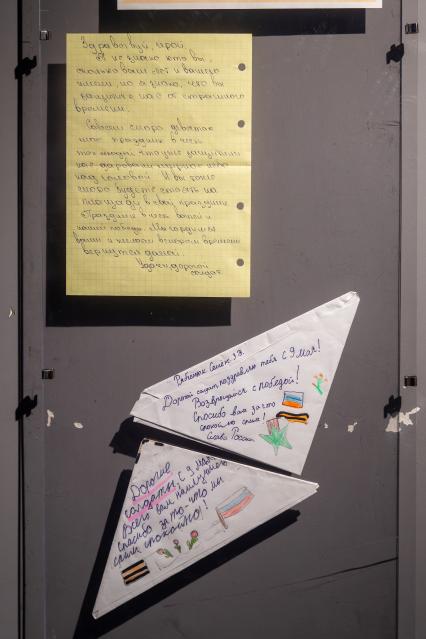 Здравствуй, герой.
Я не знаю кто вы,
сколько вам лет и вашего
имени, но я знаю, что вы
защищаете нас от страшного
времени.
Совсем скоро девятое
мая праздник в честь
тех людей которые защитили
нас даровали мирное небо
над головой. И вы тоже
скоро будете стоять на
площади в свой праздник
Праздник в честь вашей и
нашей победы. Мы гордимся
вами и желаем в скором времени
вернуться домой.
Удачи, дорогой
солдат
Рябенок Семён 3В.
Дорогой солдат, поздравляю тебя с 9 мая!
Возвращайся с победой!
Спасибо вам за что
спокойно спим!
Слава России
Дорогие
солдаты, с 9 мая
Всего вам наилучшего
спасибо за то что мы
спим спокойно!!